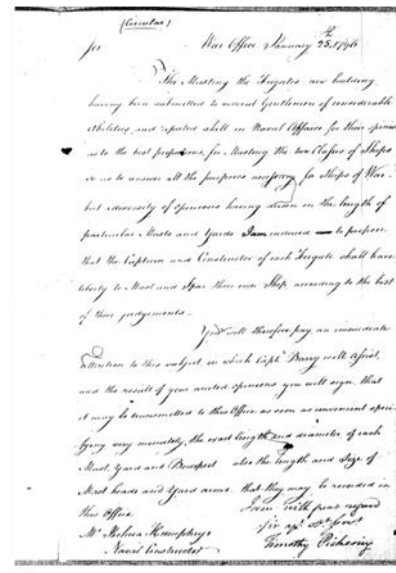 (Circular)
Sir War Office January 23d. 1796
The Masting the Frigates now building
having been submitted to several Gentlemen of considerable
Abilities, and reputed skill in Naval Affairs for their opinion
as to the best proportions for Masting the two Classes of Ships
so as to answer all the purposes necessary for Ships of War —
but a diversity of opinions having arisen on the length of
particular Masts and Yards I am induced — to propose
that the Captain and Constructor of each Frigate shall have
liberty to Mast and Spar their own Ship according to the best
of their judgements —
You will therefore pay an immediate
attention to this subject, in which Captn Barry will assist,
and the result of your united opinions you will sign, that
it may be transmitted to this Office as soon as convenient speci-
fying very minutely, the exact length and diameter of each
Mast, Yard and Bowsprit also the length and size of
Mast heads and Yard arms that they may be recorded in
this Office I am with great regard
Sir
Mr Joshua Humphreys
Naval Constructor Timothy Pickering